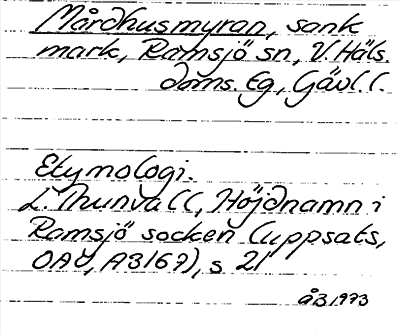 Mårdhusmyran, sank
mark, Ramsjö sn, V. Häls.
doms. Eg, Gävl. l.
Etymologi.
L. Thunvall, Höjdnamn i
Ramsjö socken (uppsats,
OAU, A3167), s. 21
ÅB 1973